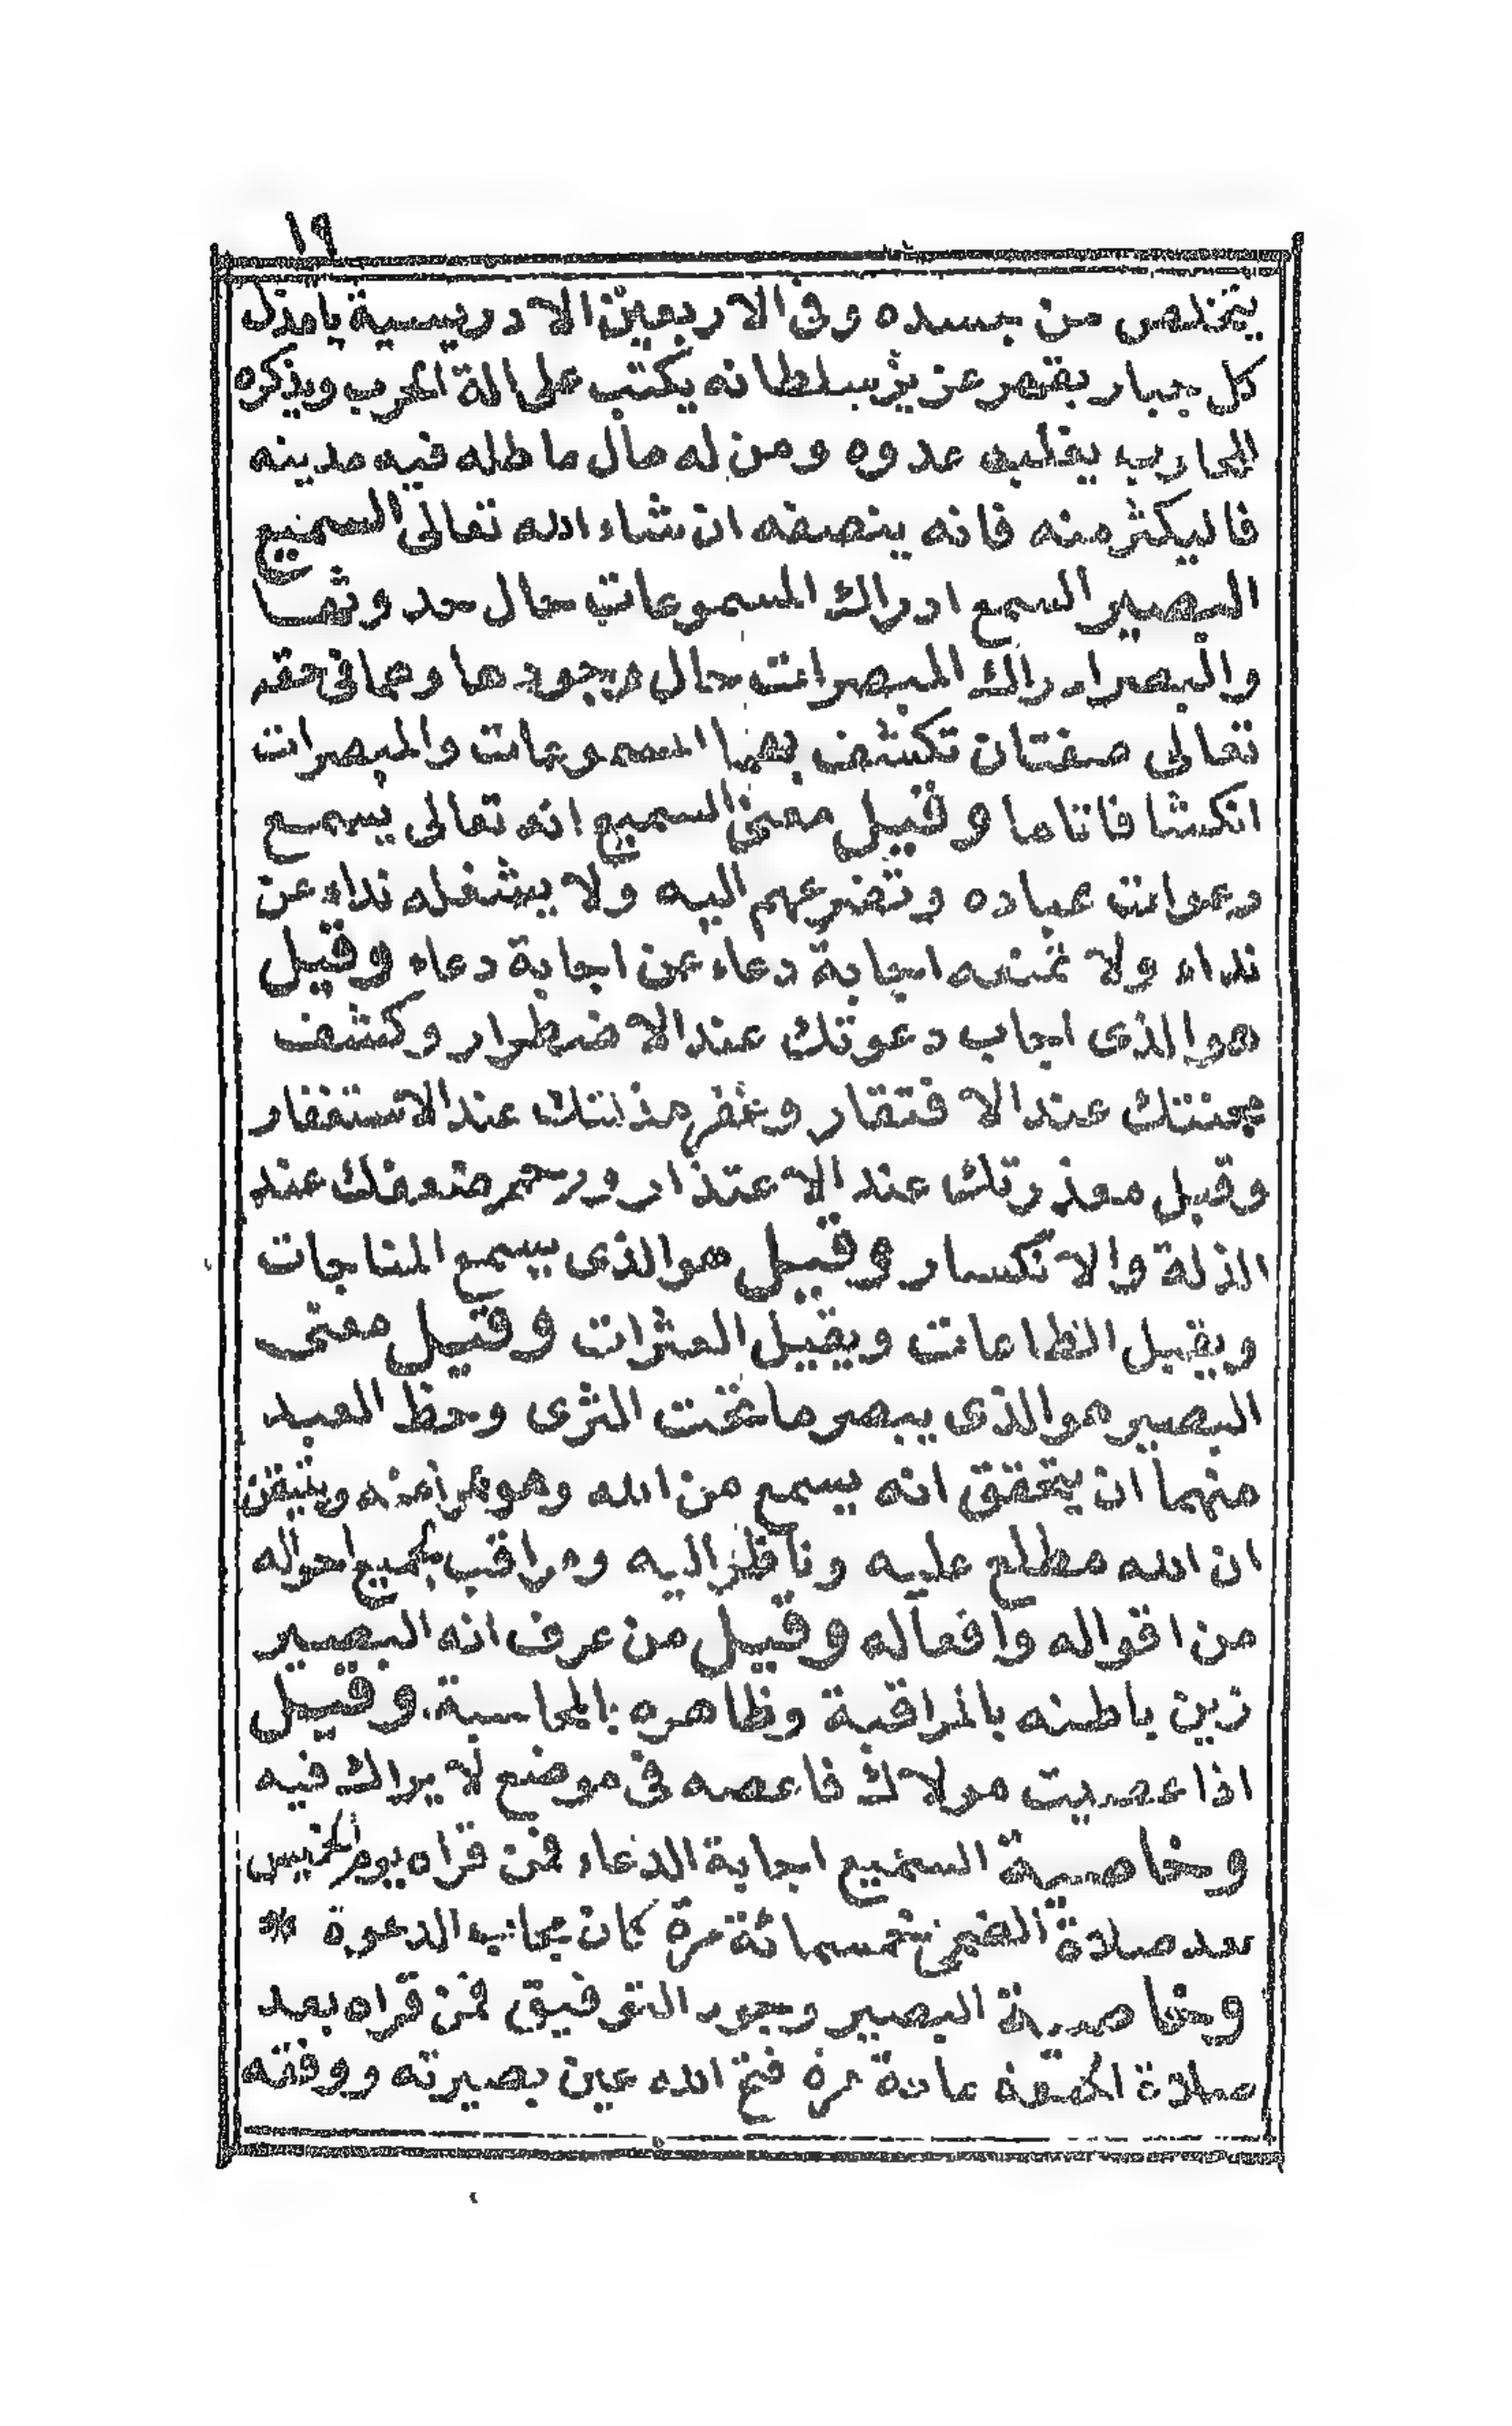 ١٩
يتخلص من جسده وفى الاربعين الادريسية يامذل
كل جبار بقهر عزيز سلطانه يكتب على الة الحرب ويذكره
المحارب يغلب عدوه ومن له مال ماطله فيه مدينه
فاليكثر منه فانه ينصفه ان شاء الله تعالى السميع
البصير السمع ادراك المسموعات حال حدوثها
والبصر ادراك المبصرات حال وجودها وهما فى حقه
تعالى صفتان تكشف بهما المسموعات والمبصرات
انكشافا تاما وقيل معنى السميع انه تعالى يسمع
دعوات عباده وتضرعهم اليه ولا يشغله نداء عن
نداء ولا تمنعه اجابة دعاء عن اجابة دعاء وقيل
هو الذى اجاب دعوتك عند الاضطرار وكشف
محنتك عند الافتقار وغفر مذلتك عند الاستغفار
وقبل معذرتك عند الاعتذار ورحم ضعفك عند
الذلة والانكسار وقيل هو الذى يسمع المناجات
ويقبل الطاعات ويقيل العثرات وقيل معنى
البصير هو الذى يبصر ما تحت الثرى وحظ العبد
منهما ان يتحقق انه يسمع من الله وهو مراد منه ويتيقن
ان الله مطلع عليه وناظر اليه ومراقب لجميع احواله
من اقواله وافعاله وقيل من عرف انه البصير
زين باطنه بالمراقبة وظاهره بالمحاسبة. وقيل
اذا عصيت مولاك فاعصه فى موضع لا يراك فيه
وخاصية السميع اجابة الدعاء فمن قراه يوم الخميس
بعد صلاة الضحى خمسمائة مرة كان مجاب الدعوة *
وخاصية البصير وجود التوفيق فمن قراه بعد
صلاة الجمعة مائة مرة فتح الله عين بصيرته ووفقه